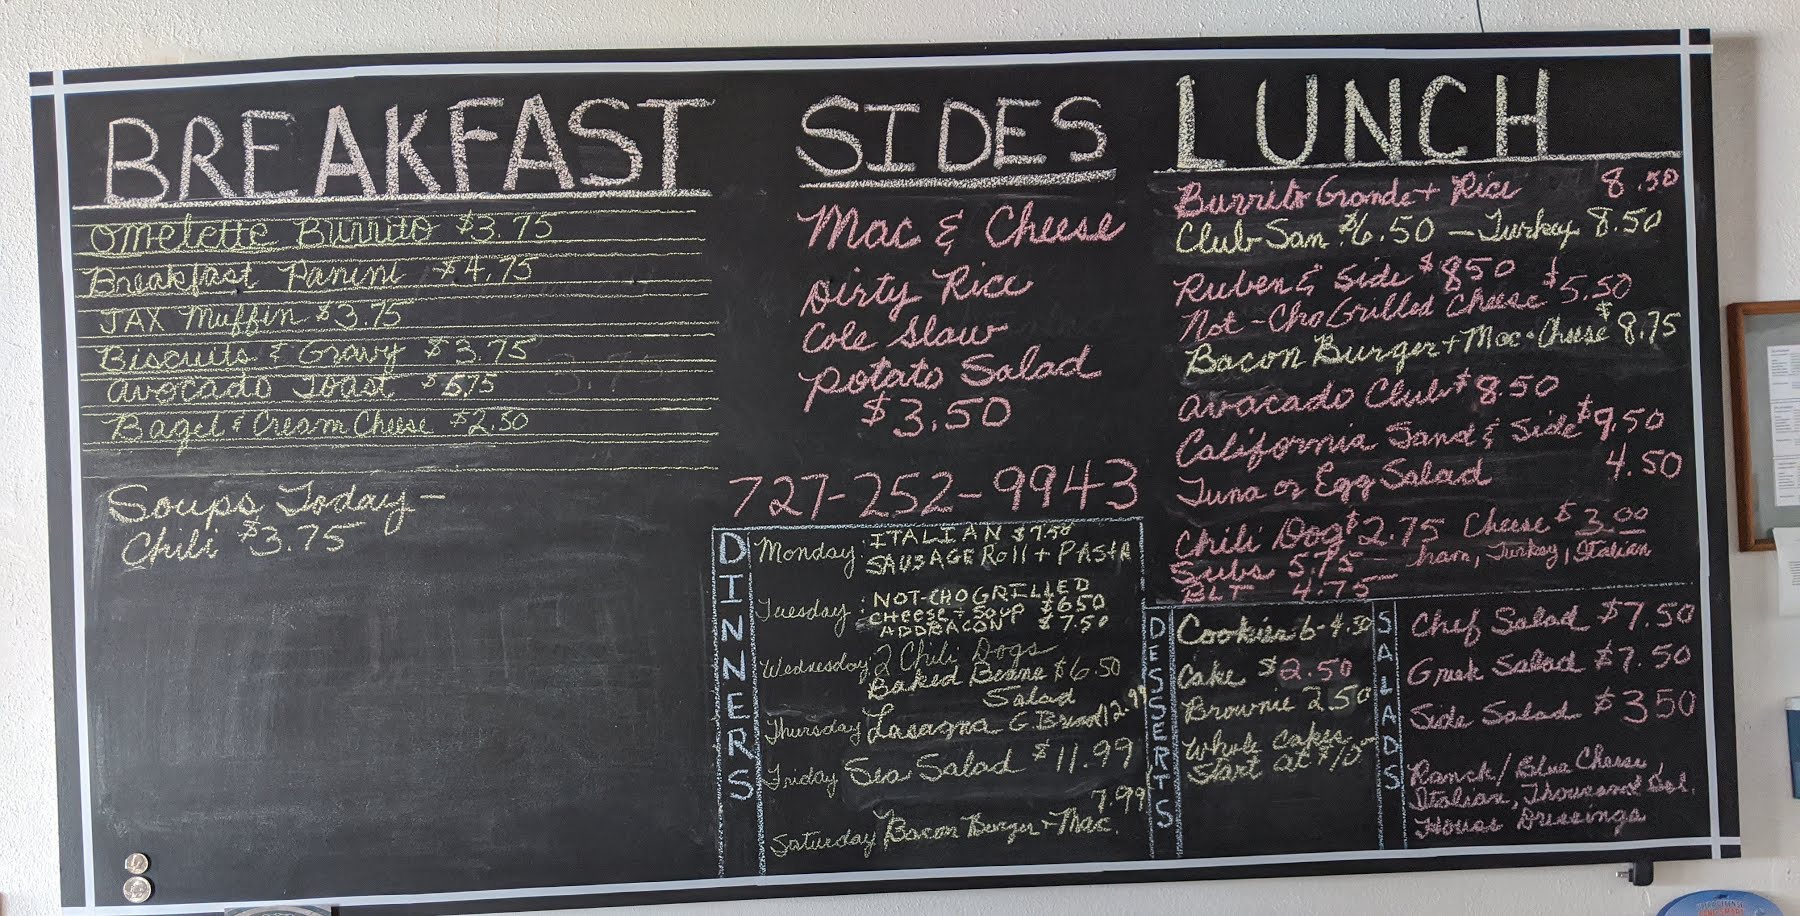 BREAKFAST
Omelette Burrito $3.75
Breakfast Panini $4.75
JAX Muffin $3.75
Biscuits & Gravy $3.75
Avocado Toast $5.75
Bagel & Cream Cheese $2.50
Soups Today -
Chili $3.75
SIDES
Mac & Cheese
Dirty Rice
Cole Slaw
Potato Salad
$3.50
727-252-9943
DINNERS
Monday: ITALIAN $7.50
SAUSAGE Roll + PASTA
Tuesday: NOT-CHO GRILLED
CHEESE + SOUP $6.50
ADD BACON $7.50
Wednesday: 2 Chili Dogs
Baked Beans $6.50
Salad
Thursday Lasagna G. Bread 12.99
Friday Sea Salad $11.99
7.99
Saturday Bacon Burger + Mac
LUNCH
Burrito Grande + Rice 8.50
Club San $6.50 - Turkey 8.50
Ruben & Side $850
Not-Cho Grilled Cheese $5.50
Bacon Burger + Mac + Cheese $8.75
Avacado Club $8.50
California Sand & Side $9.50
Tuna or Egg Salad 4.50
Chili Dog $2.75 Cheese $3.00
Subs 5.75 - ham, Turkey, Italian
BLT 4.75
DESSERTS
Cookies 6-4.50
Cake $2.50
Brownie 2.50
Whole cakes
Start at $10
SALADS
Chef Salad $7.50
Greek Salad $7.50
Side Salad $350
Ranch/Blue Cheese,
Italian, Thousand Isl.
House Dressings